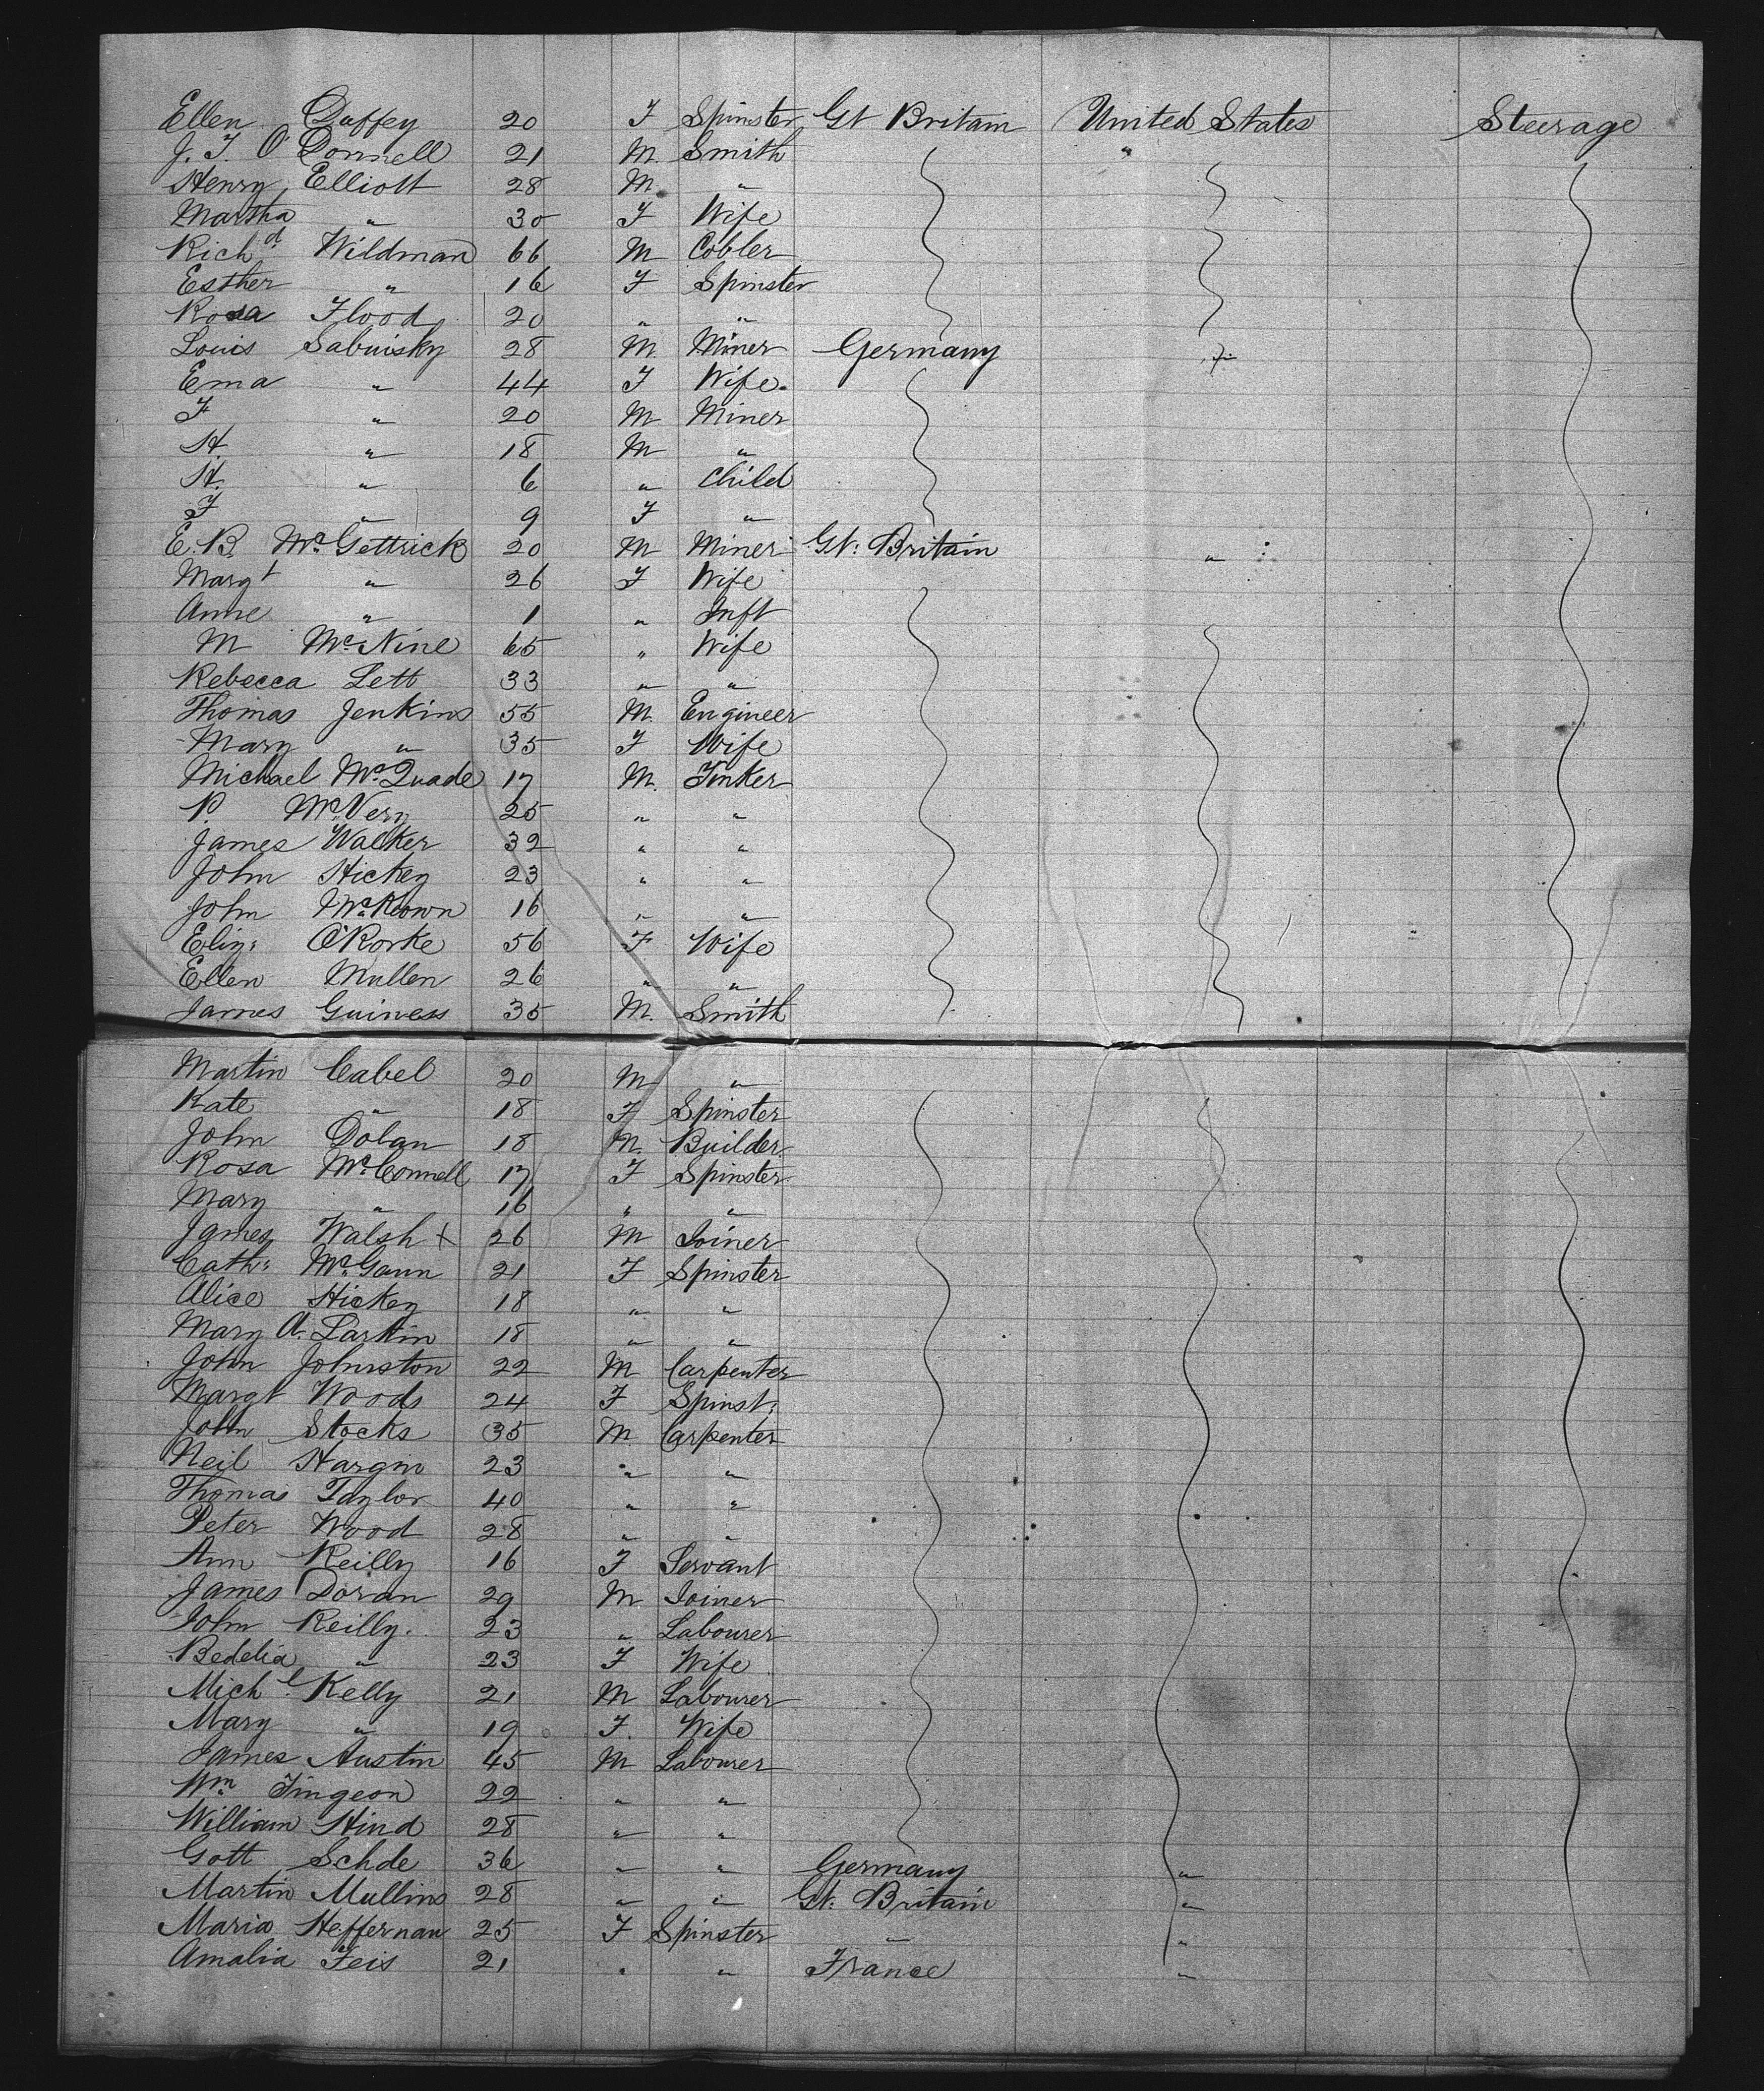 Ellen Duffey 20 F Spinster Gt Britain United States Steerage
J. F. O'Donnell 21 M Smith "
Henry Elliott 28 M "
Martha " 30 F Wife
Richd Wildman 66 M Cobler
Esther " 16 F Spinster
Rosa Flood 20 " "
Louis Sabinsky 28 M Miner Germany "
Ema " 44 F Wife
F " 20 M Miner
H. " 18 M "
H. " 6 " Child
F " 9 F "
E. B. McGettrick 20 M Miner Gt. Britain "
Margt " 26 F Wife
Anne " 1 " Inft
M McNine 65 " Wife
Rebecca Lett 33 " "
Thomas Jenkins 55 M. Engineer
Mary " 35 F Wife
Michael McQuade 17 M. Tinker
P. McVery 25 " "
James Walker 32 " "
John Hickey 23 " "
John McKeown 16 " "
Eliz: O'Rorke 56 F Wife
Ellen Mullen 26 " "
James Guiness 35 M. Smith
Martin Cabel 20 M "
Kate " 18 F Spinster
John Dolan 18 M. Builder
Rosa McConnell 17 F Spinster
Mary " 16 " "
James Walsh + 26 M Joiner
Cath: McGann 21 F Spinster
Alice Hickey 18 " "
Mary A. Larkin 18 " "
John Johnston 22 M Carpenter
Margt Woods 24 F Spinst:
John Stocks 35 M Carpenter
Neil Hargin 23 " "
Thomas Taylor 40 " "
Peter Wood 28 " "
Ann Reilly 16 F Servant
James Doran 29 M Joiner
John Reilly. 23 " Labourer
Bedelia " 23 F Wife
Michl Kelly 21 M Labourer
Mary " 19 F. Wife
James Austin 45 M Labourer
Wm 22 " "
William Hind 28 " "
Gott Schde 36 " " Germany "
Martin Mullins 28 " " Gt. Britain "
Maria Heffernan 25 F Spinster " "
Amalia Feis 21 " " France "